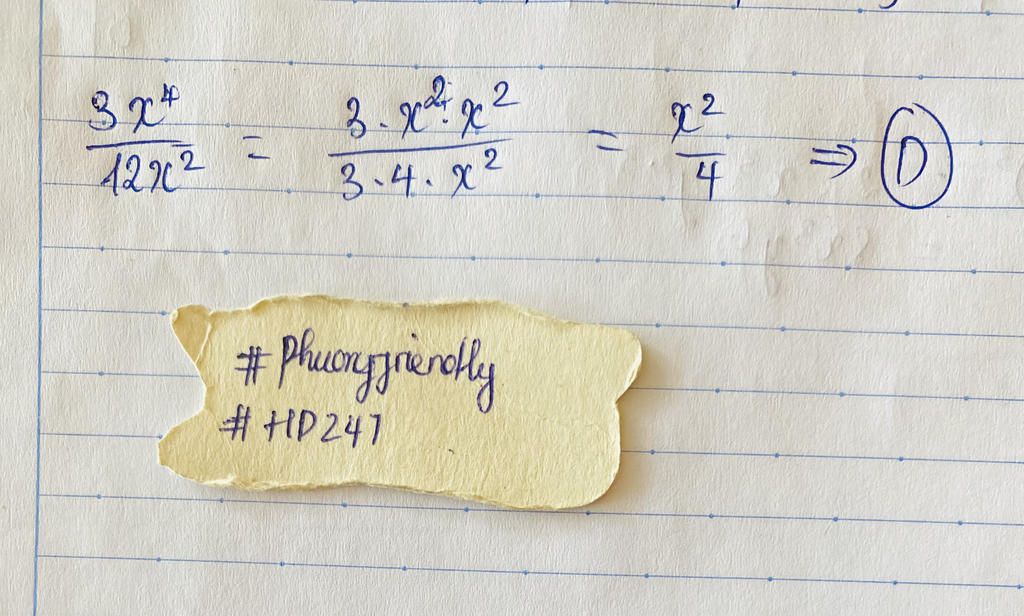 3x⁴/12x² = 3.x².x²/3.4.x² = x²/4 ⇒ D
#Phuongfriendly
#HD247